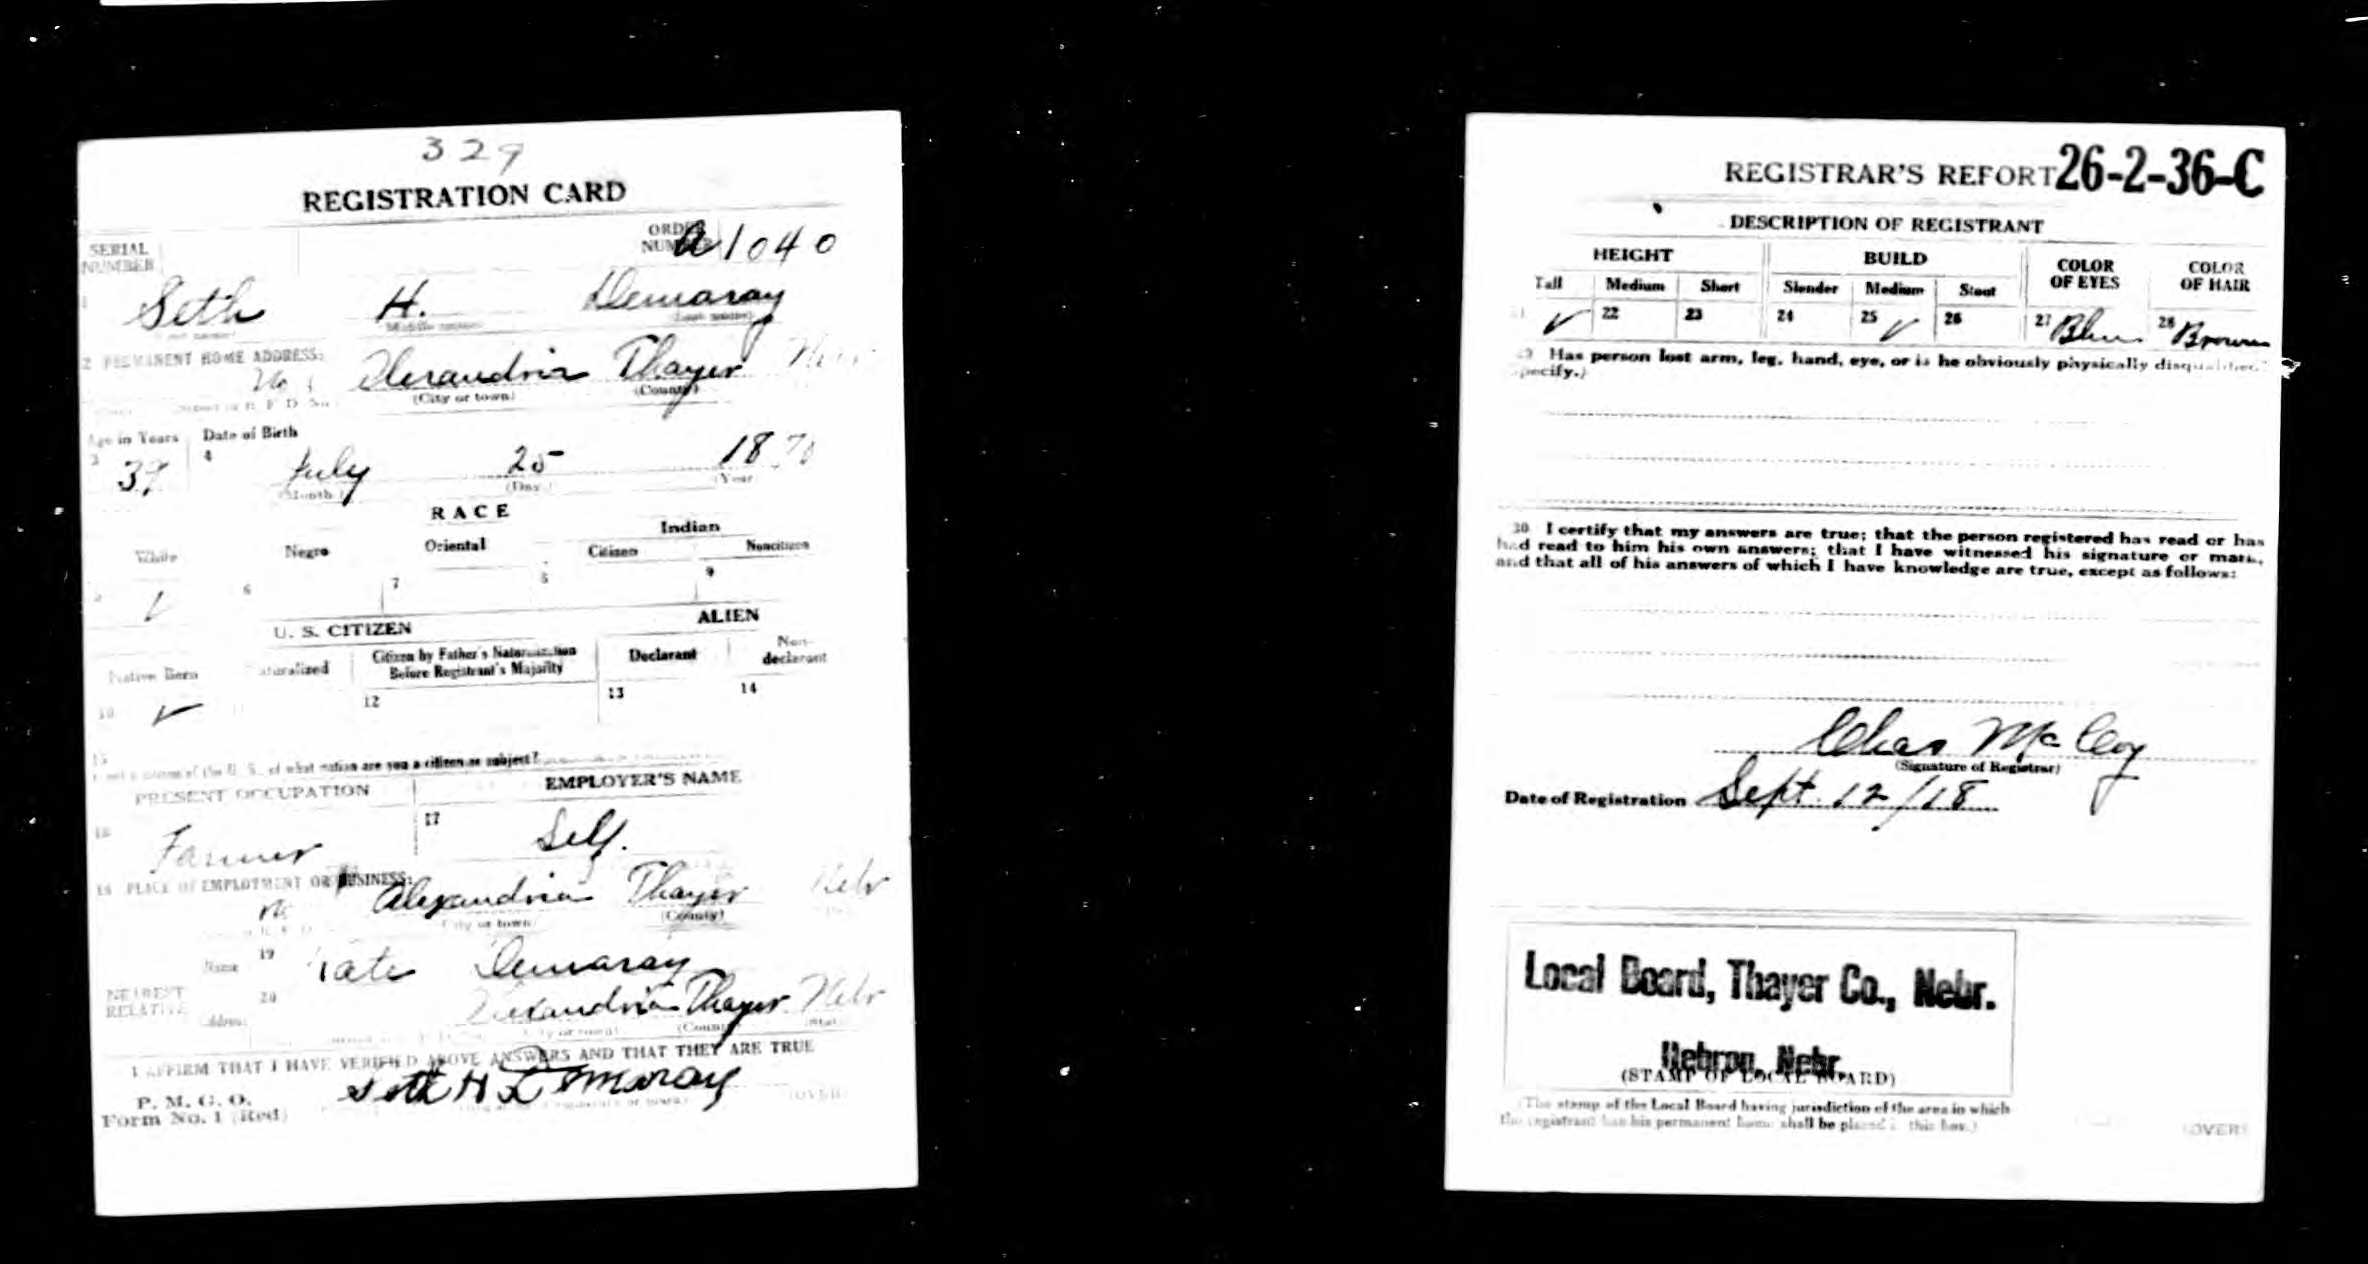 329
REGISTRATION CARD
SERIAL NUMBER
ORDER NUMBER A1040
1 Seth H. Demaray
Middle name (Last name)
2 PERMANENT HOME ADDRESS:
No 1 Alexandria Thayer Nebr
(City or town) (County)
Age in Years Date of Birth
3 39 4 July 25 18
(Month) (Day) (Year
RACE
White Negro Oriental Indian
Citizen Noncitizen
5 ✓ 6 7 8 9
U. S. CITIZEN ALIEN
Native Born Naturalized Citizen by Father's Naturalization Before Registrant's Majority Declarant Non-declarant
10 ✓ 12 13 14
15 of what nation are you a citizen or subject?
PRESENT OCCUPATION EMPLOYER'S NAME
16 Farmer 17 Self.
18 PLACE OF EMPLOYMENT OR BUSINESS:
Alexandria Thayer Nebr
City or town (County)
NEAREST RELATIVE
Name 19 Kate Demaray
Address 20 Alexandria Thayer Nebr
I AFFIRM THAT I HAVE VERIFIED ABOVE ANSWERS AND THAT THEY ARE TRUE
P. M. G. O.
Form No. 1 (Red) Seth H Demaray (OVER)
REGISTRAR'S REPORT 26-2-36-C
DESCRIPTION OF REGISTRANT
HEIGHT BUILD COLOR OF EYES COLOR OF HAIR
Tall Medium Short Slender Medium Stout
21 ✓ 22 23 24 25 ✓ 26 27 Blue 28 Brown
29 Has person lost arm, leg, hand, eye, or is he obviously physically disqualified?
(Specify.)
30 I certify that my answers are true; that the person registered has read or has
had read to him his own answers; that I have witnessed his signature or mark,
and that all of his answers of which I have knowledge are true, except as follows:
Chas McCoy
(Signature of Registrar)
Date of Registration Sept. 12/18
Local Board, Thayer Co., Nebr.
Hebron, Nebr.
(STAMP OF LOCAL BOARD)
(The stamp of the Local Board having jurisdiction of the area in which
the registrant has his permanent home shall be placed in this box.)
(OVER)